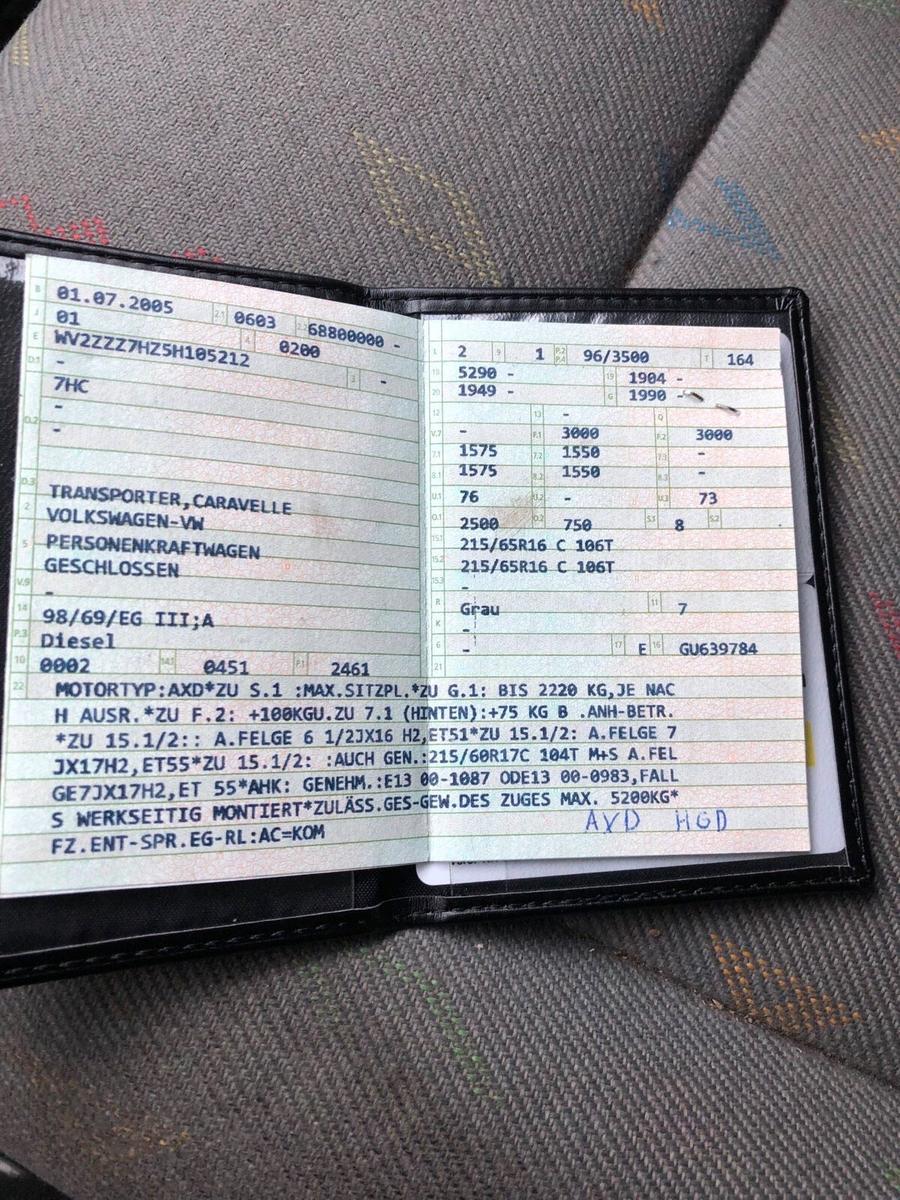 B 01.07.2005 2.1 0603 2.2 68800000 -
J 01 4 0200
E WV2ZZZ7HZ5H105212
D.1 - 3 -
7HC
-
D.2 -
D.3 TRANSPORTER,CARAVELLE
2 VOLKSWAGEN-VW
5 PERSONENKRAFTWAGEN
GESCHLOSSEN
V.9 -
14 98/69/EG III;A
P.3 Diesel
10 0002 14.1 0451 P.1 2461
L 2 9 1 P.2 P.4 96/3500 T 164
18 5290 - 19 1904 -
20 1949 - G 1990 -
12 - 13 - Q
V.7 - F.1 3000 F.2 3000
7.1 1575 7.2 1550 7.3 -
8.1 1575 8.2 1550 8.3 -
U.1 76 U.2 - U.3 73
O.1 2500 O.2 750 S.1 8 S.2
15.1 215/65R16 C 106T
15.2 215/65R16 C 106T
15.3 -
R Grau 11 7
K -
6 - 17 E 16 GU639784
21
22 MOTORTYP:AXD*ZU S.1 :MAX.SITZPL.*ZU G.1: BIS 2220 KG,JE NAC
H AUSR.*ZU F.2: +100KGU.ZU 7.1 (HINTEN):+75 KG B .ANH-BETR.
*ZU 15.1/2:: A.FELGE 6 1/2JX16 H2,ET51*ZU 15.1/2: A.FELGE 7
JX17H2,ET55*ZU 15.1/2: :AUCH GEN.:215/60R17C 104T M+S A.FEL
GE7JX17H2,ET 55*AHK: GENEHM.:E13 00-1087 ODE13 00-0983,FALL
S WERKSEITIG MONTIERT*ZULÄSS.GES-GEW.DES ZUGES MAX. 5200KG*
FZ.ENT-SPR.EG-RL:AC=KOM
AXD HGD